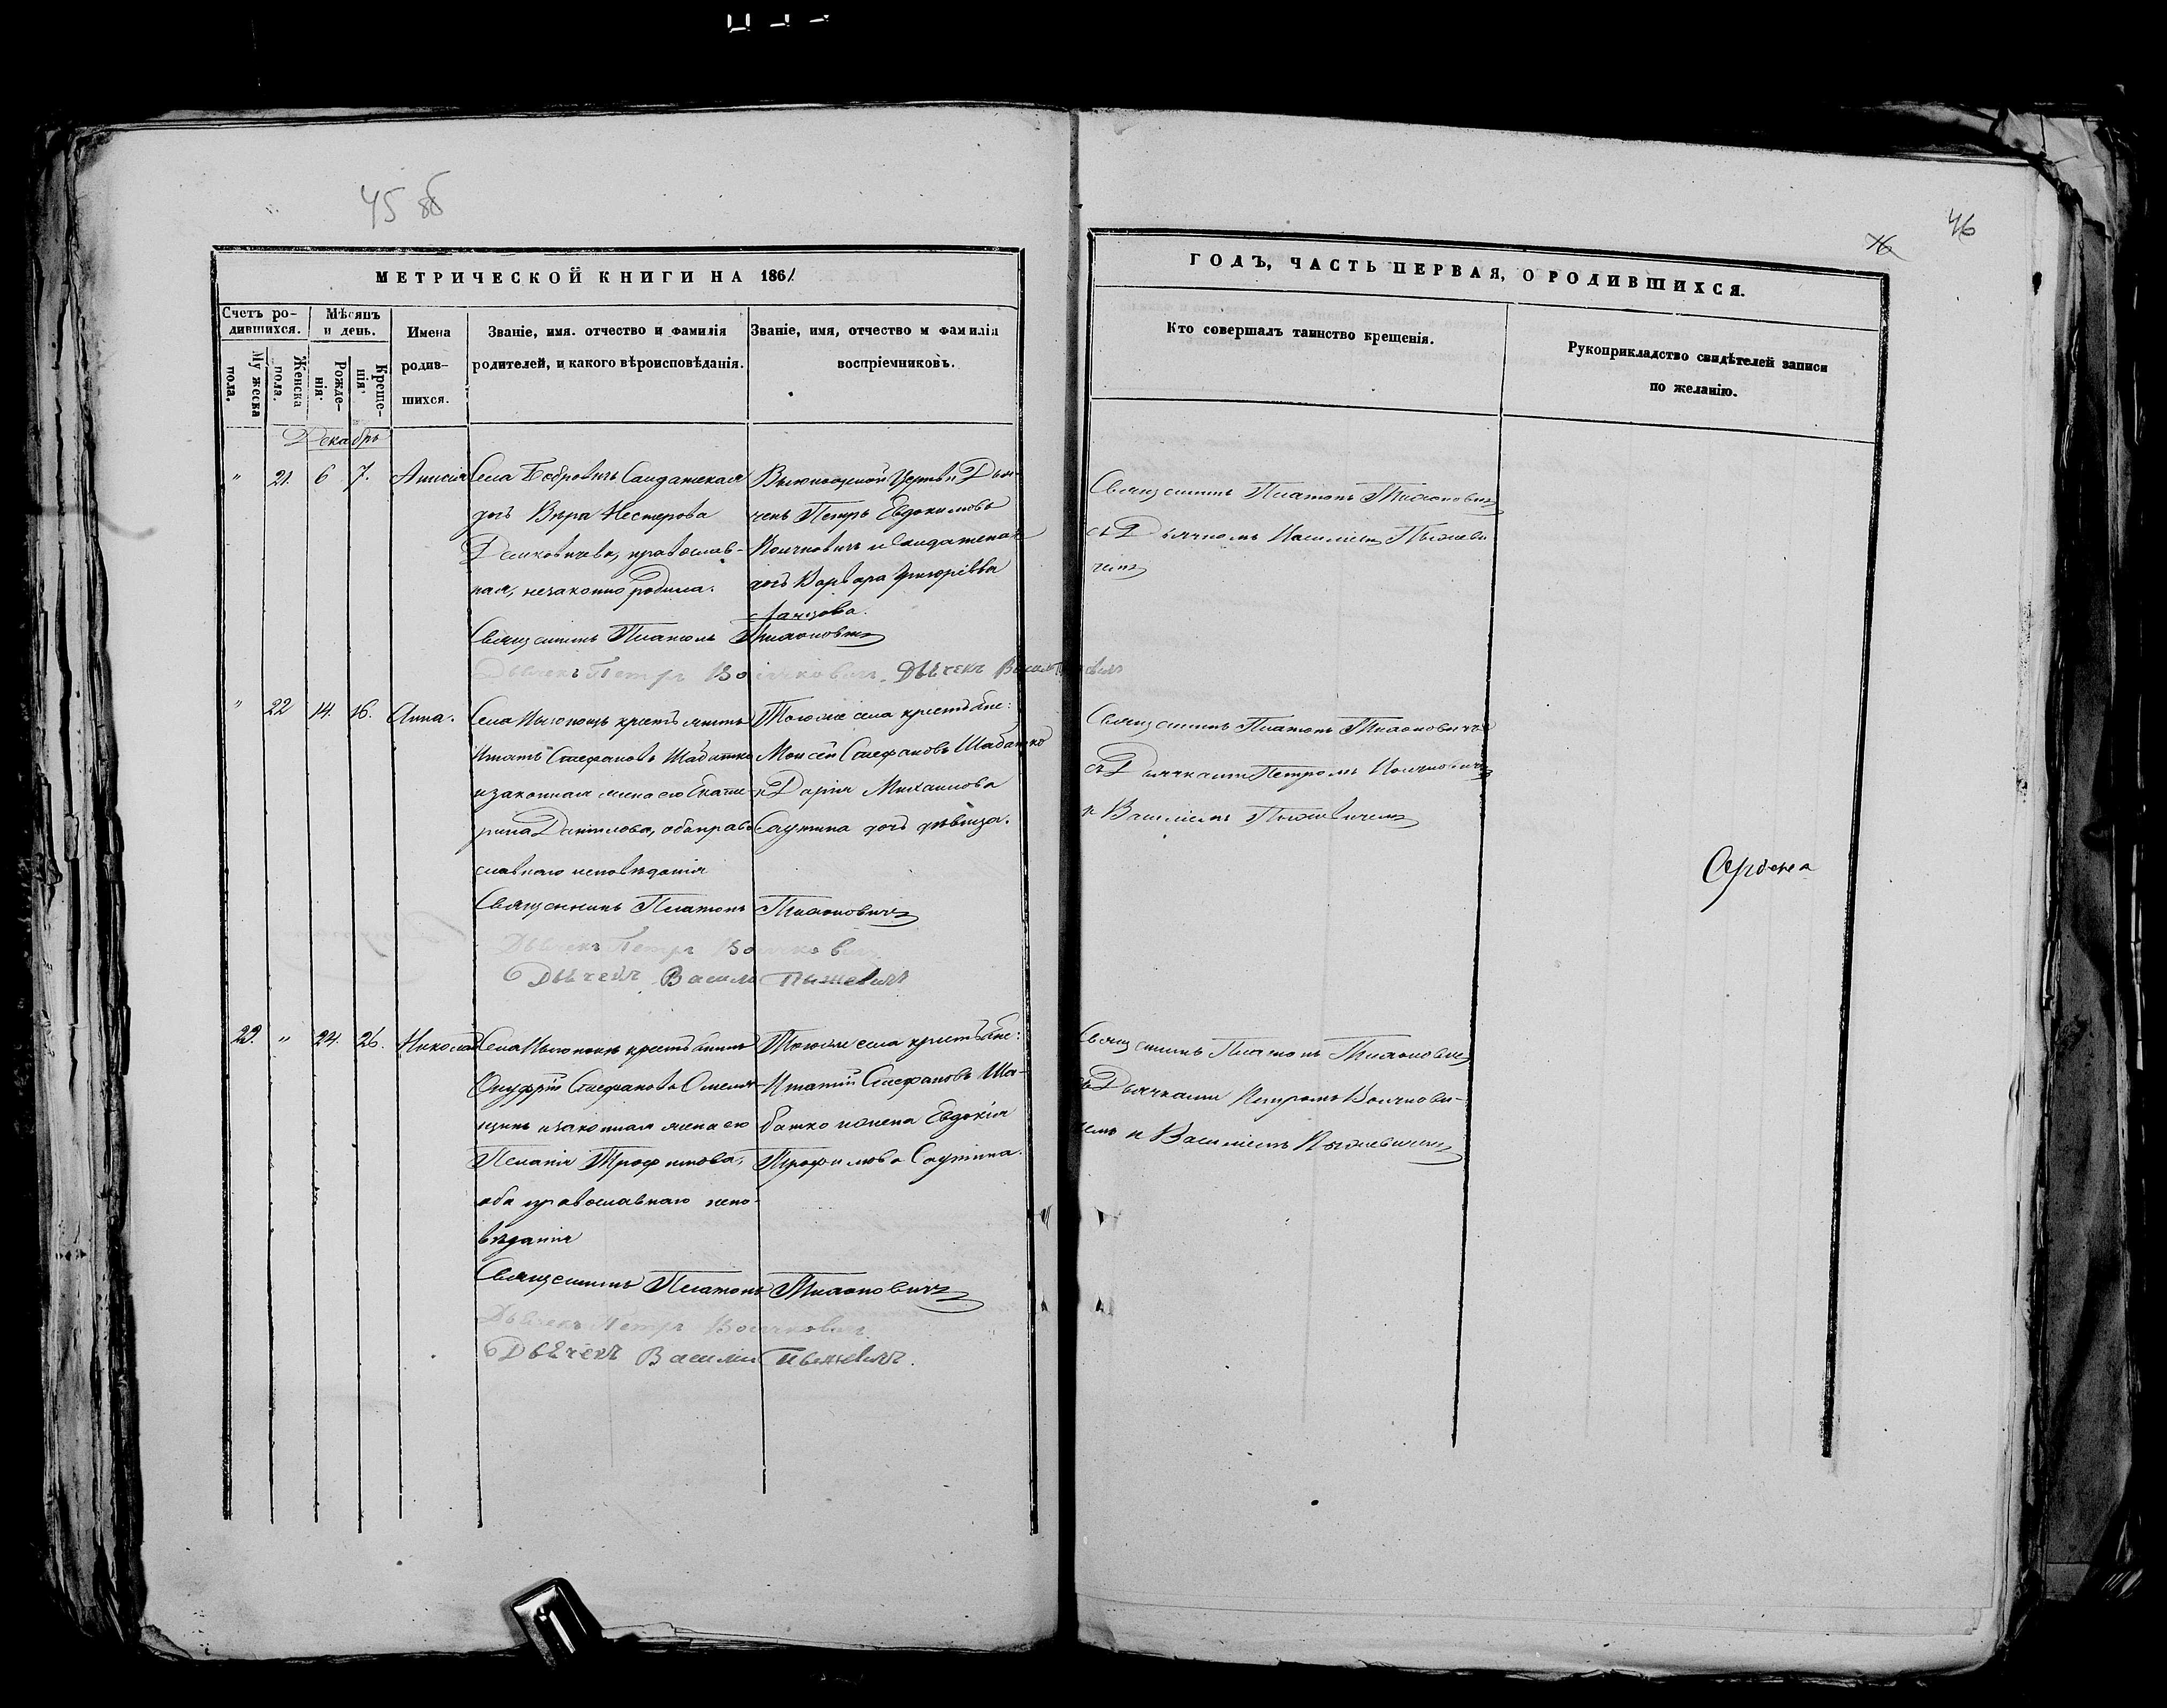 45 об
МЕТРИЧЕСКОЙ КНИГИ НА 1861
Счетъ родившихся.
Мужеска пола.
Женска пола.
Мѣсяцъ и день.
Рожденія.
Крещенія.
Имена родившихся.
Званіе, имя, отчество и фамилія
родителей, и какого вѣроисповѣданія.
Званіе, имя, отчество и фамилія
воспріемниковъ.
Декабрь
" 21. 6 7. Анисія
Села Бобровичъ Салдатская
дочь Вѣра Нестерова
православ-
ная, незаконно родила.
Выгонощской Церкви Дья-
чекъ Петръ Евдокимовъ
Волчковичъ и Салдатская
дочь Варвара Григорієва
Священникъ Платонъ Тихоновичъ
Дьячекъ Петръ Волчковичъ. Дьячекъ
" 22 14. 16. Анна.
Села Выгонощъ крестьянинъ
Игнатій Стефановъ Шабатко
и законная жена его Екате-
рина Данилова, оба право
славнаго исповѣданія
Тогоже села крестьяне:
Моисей Стефановъ Шабатко
и Дарія Михаилова
Саутина дочь дѣвица.
Священникъ Платонъ Тихоновичъ
Дьячекъ Петръ Волчковичъ
Дьячекъ Василій Пыжевичъ
22. " 24. 26. Николай
Села Выгонощъ крестьянинъ
Онуфрій Стефановъ Омелья-
и законная жена его
Пелагія Трофимова,
оба православнаго испо-
вѣданія
Тогоже села крестьяне:
Игнатій Стефановъ Ша-
батко и жена Евдокія
Трофимова Саутина.
Священникъ Платонъ Тихоновичъ
Дьячекъ Петръ Волчковичъ
Дьячекъ Василій Пыжевичъ.
46
ГОДЪ, ЧАСТЬ ПЕРВАЯ, О РОДИВШИХСЯ.
Кто совершалъ таинство крещенія.
Рукоприкладство свидѣтелей записи
по желанію.
Священникъ Платонъ Тихоновичъ
съ Дьячкомъ Василіемъ Пыжеви
чемъ
Священникъ Платонъ Тихоновичъ
съ Дьячками Петромъ Волчковичемъ
и Василіемъ Пыжевичемъ
Священникъ Платонъ Тихоновичъ
съ Дьячками Петромъ Волчкови-
чемъ и Василіемъ Пыжевичемъ